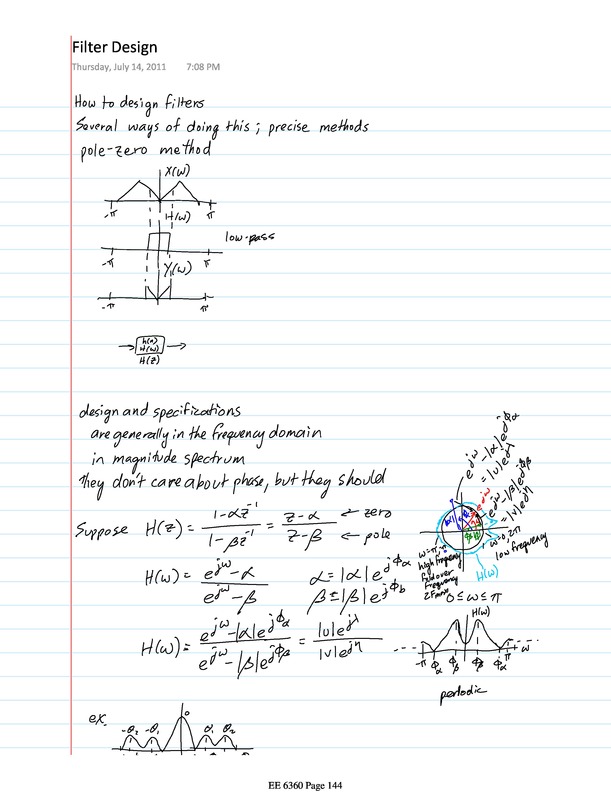 Filter Design
Thursday, July 14, 2011 7:08 PM
How to design filters
Several ways of doing this; precise methods
pole-zero method
X(ω)
-π π
H(ω)
low-pass
-π π
Y(ω)
-π π
h(n)
H(ω)
H(z)
design and specifications
are generally in the frequency domain
in magnitude spectrum
they don't care about phase, but they should
Suppose H(z) = (1-αz⁻¹)/(1-βz⁻¹) = (z-α)/(z-β) ← zero ← pole
H(ω) = (e^jω - α)/(e^jω - β) α = |α|e^jϕα
β = |β|e^jϕb
H(ω) = (e^jω - |α|e^jϕα)/(e^jω - |β|e^jϕβ) = |u|e^jλ/|v|e^jη
e^jω - |α|e^jϕα
= |u|e^jλ
e^jω
e^jω - |β|e^jϕβ
= |v|e^jη
ω=0,2π
low frequency
ω=π,
high frequency
foldover
frequency
H(ω)
0 ≤ ω ≤ π
H(ω)
-π ϕα ϕβ ϕβ ϕα π ω
periodic
ex.
-θ₂ -θ₁ 0 θ₁ θ₂
EE 6360 Page 144